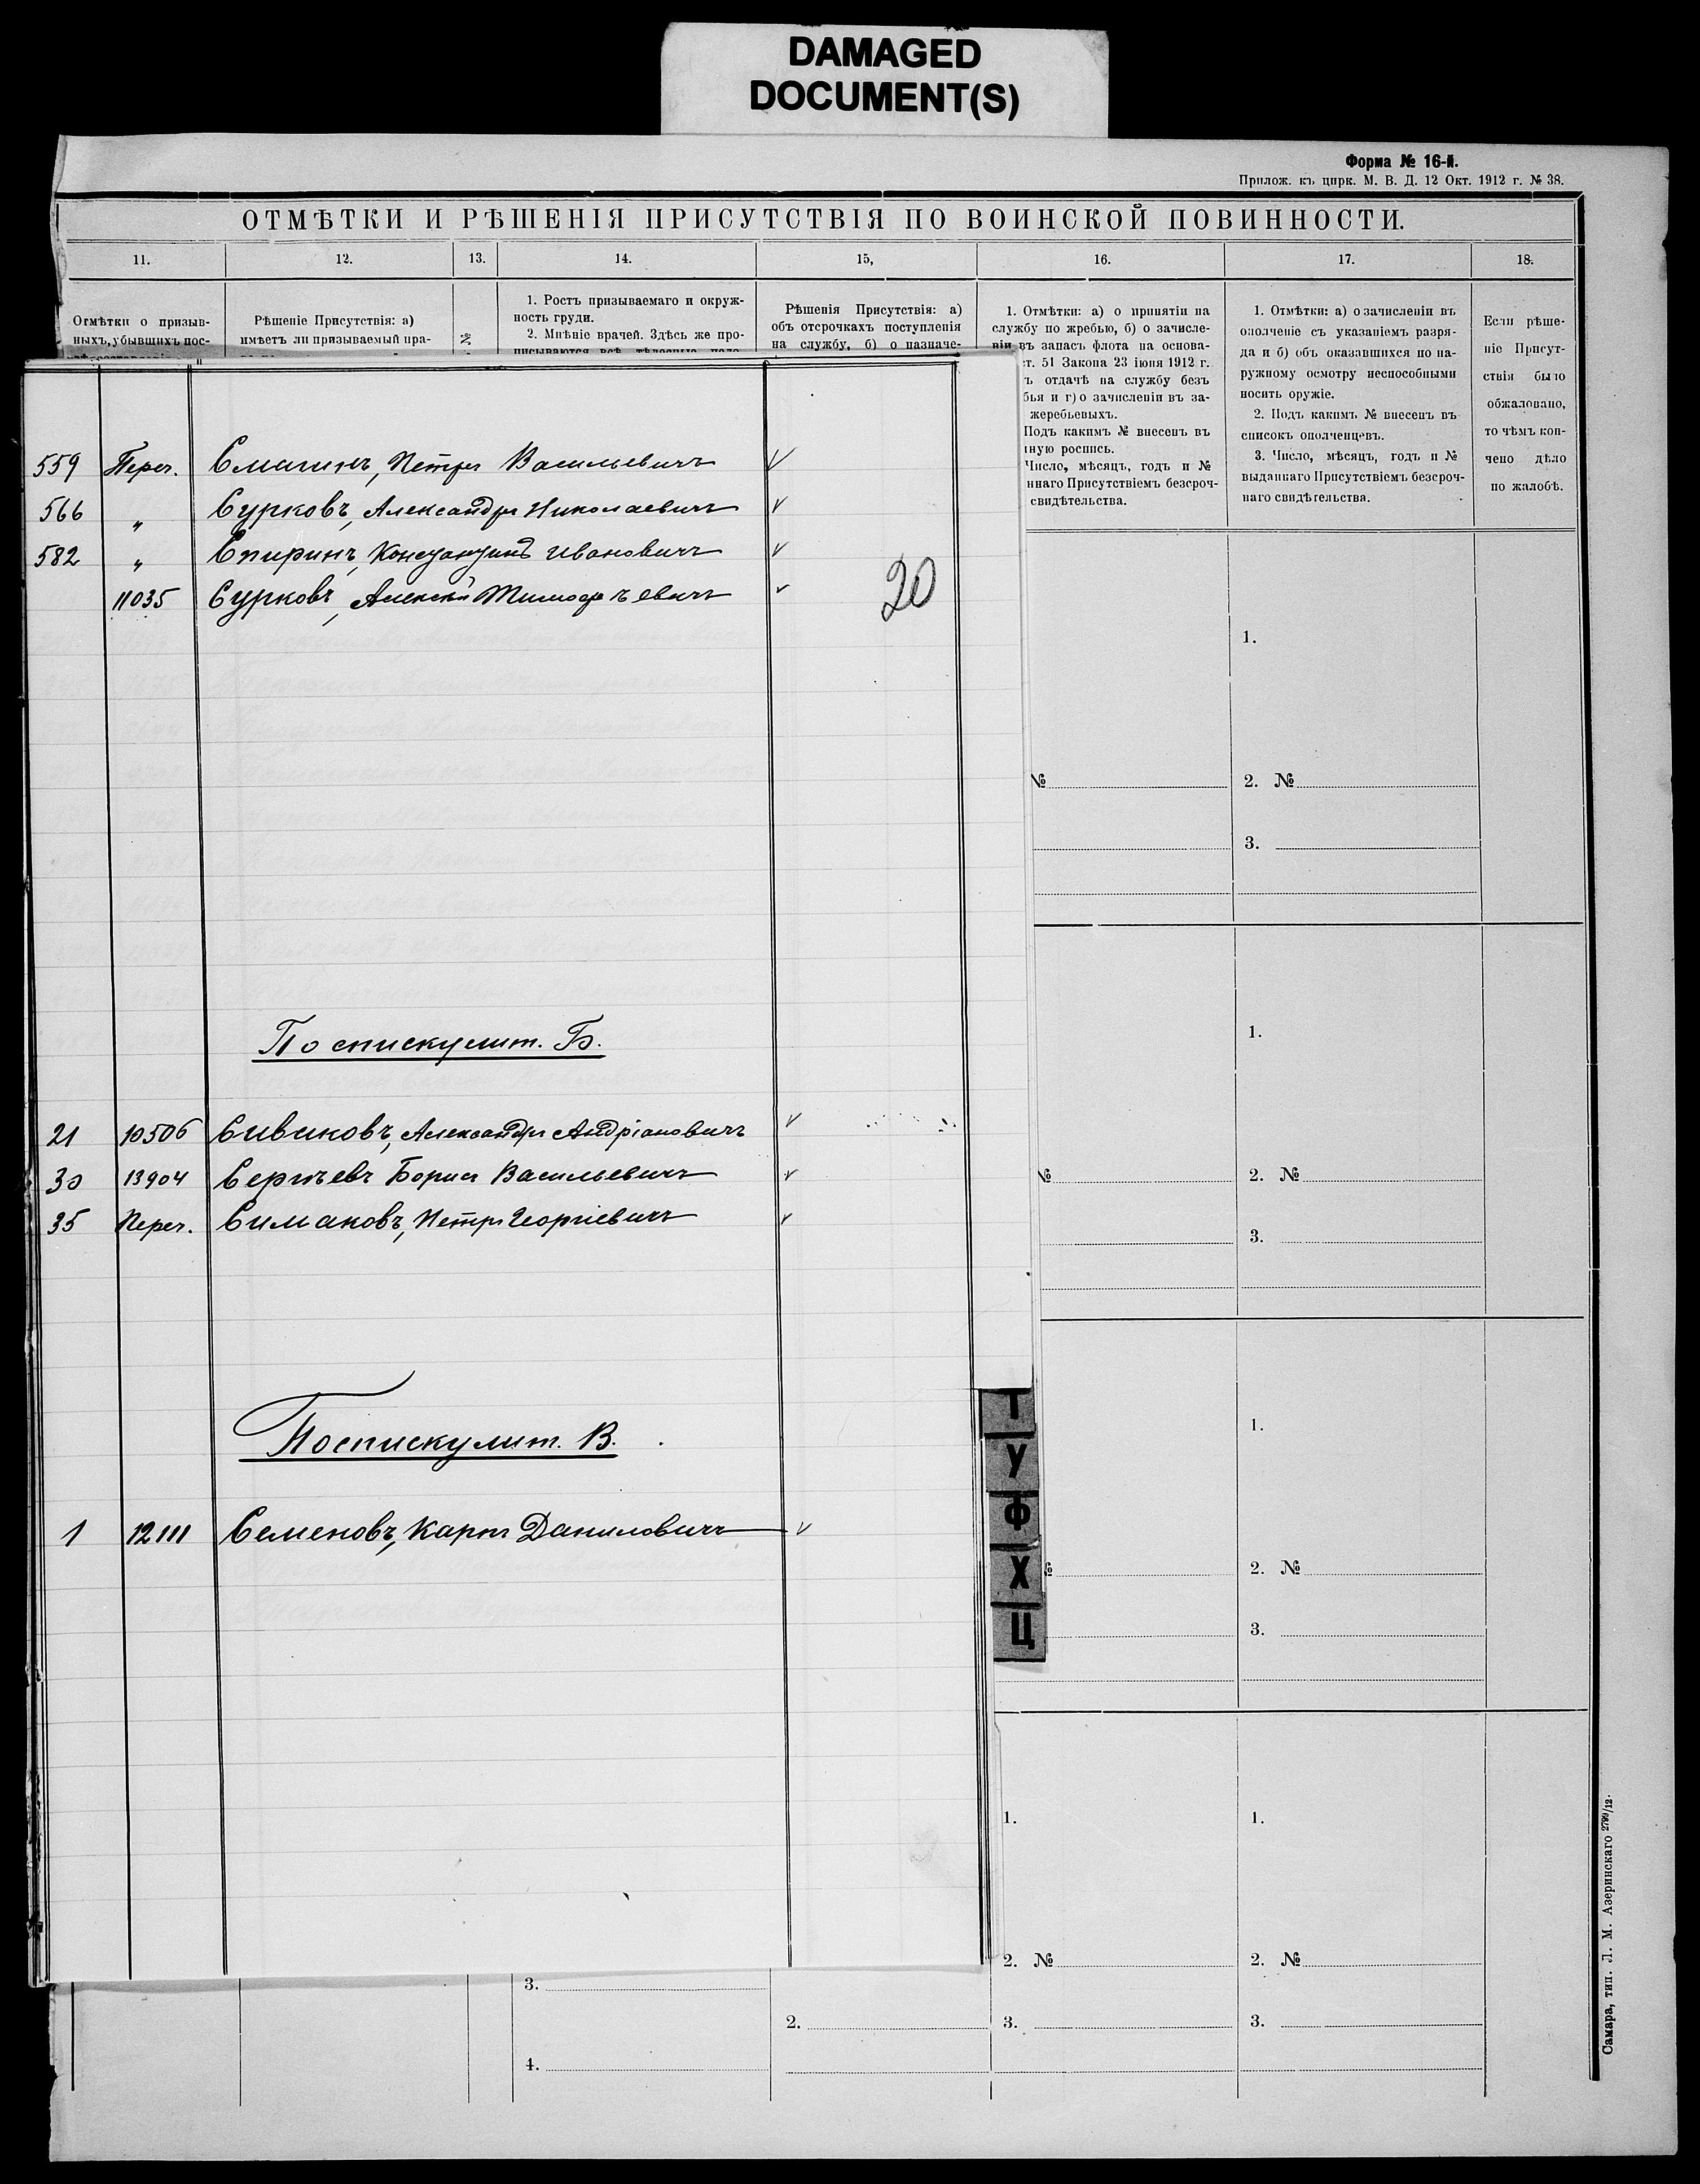 DAMAGED
DOCUMENT(S)
Форма № 16-й.
Прилож. къ цирк. М. В. Д. 12 Окт. 1912 г. № 38.
ОТМѢТКИ И РѢШЕНІЯ ПРИСУТСТВІЯ ПО ВОИНСКОЙ ПОВИННОСТИ.
11. 12. 13. 14. 15, 16. 17. 18.
Отмѣтки о призыв-
ныхъ, убывшихъ пос-
Рѣшеніе Присутствія: а)
имѣетъ ли призываемый пра-
№
1. Ростъ призываемаго и окруж-
ность груди.
2. Мнѣніе врачей. Здѣсь же про-
писываются всѣ тѣлесные недо-
Рѣшенія Присутствія: а)
объ отсрочкахъ поступленія
на службу, б) о назначе-
1. Отмѣтки: а) о принятіи на
службу по жребью, б) о зачисле-
ніи въ запасъ флота на основа-
ст. 51 Закона 23 іюня 1912 г.
ъ отдачѣ на службу безъ
бья и г) о зачисленіи въ за-
жеребьевыхъ.
Подъ какимъ № внесенъ въ
ную роспись.
Число, мѣсяцъ, годъ и №
ннаго Присутствіемъ безсроч-
свидѣтельства.
1. Отмѣтки: а) о зачисленіи въ
ополченіе съ указаніемъ разря-
да и б) объ оказавшихся по на-
ружному осмотру неспособными
носить оружіе.
2. Подъ какимъ № внесенъ въ
списокъ ополченцевъ.
3. Число, мѣсяцъ, годъ и №
выданнаго Присутствіемъ безсроч-
наго свидѣтельства.
Если рѣше-
ніе Присут-
ствія было
обжаловано,
то чѣмъ кон-
чено дѣло
по жалобѣ.
559 Переч. Смагинъ, Петръ Васильевичъ
566 " Сурковъ, Александръ Николаевичъ
582 " Спиринъ, Константинъ Ивановичъ
11035 Сурковъ, Алексѣй Тимофѣевичъ
20
По списку лит. Б.
21 10506 Сивиковъ, Александръ Андріановичъ
30 13904 Сергѣевъ Борисъ Васильевичъ
35 Переч. Симаковъ, Петръ Георгіевичъ
По списку лит. В.
1 12111 Семеновъ, Карпъ Даниловичъ
Т
У
Ф
Х
Ц
1.
№ 2. №
3.
1.
№ 2. №
3.
1.
№ 2. №
3.
1. 1.
2. № 2. №
3.
2. 3. 3.
4.
Самара, тип. Л. М. Азеринскаго 2799/12.